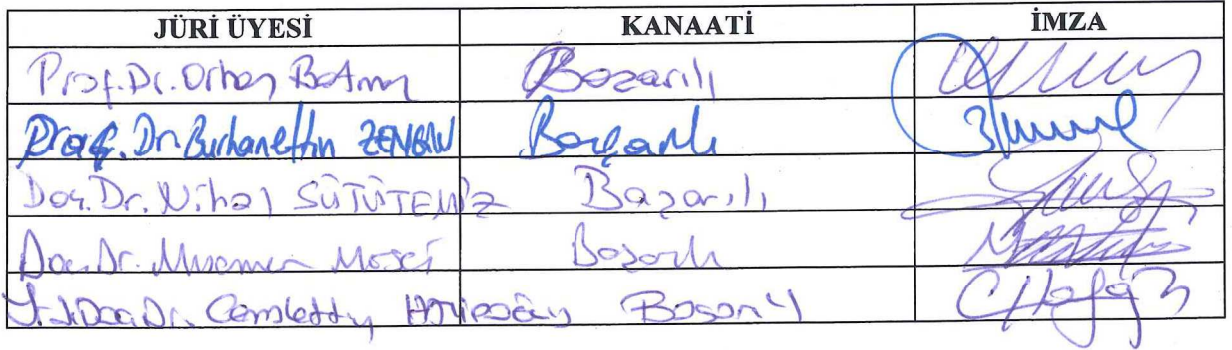 JÜRİ ÜYESİ KANAATİ İMZA
Prof.Dr. Orhan Batman Başarılı
Prof. Dr. Burhanettin ZENGİN Başarılı
Doç. Dr. Nihal SÜTÜTEMİZ Başarılı
Doç. Dr. Başarılı
Y.Doç.Dr. Başarılı